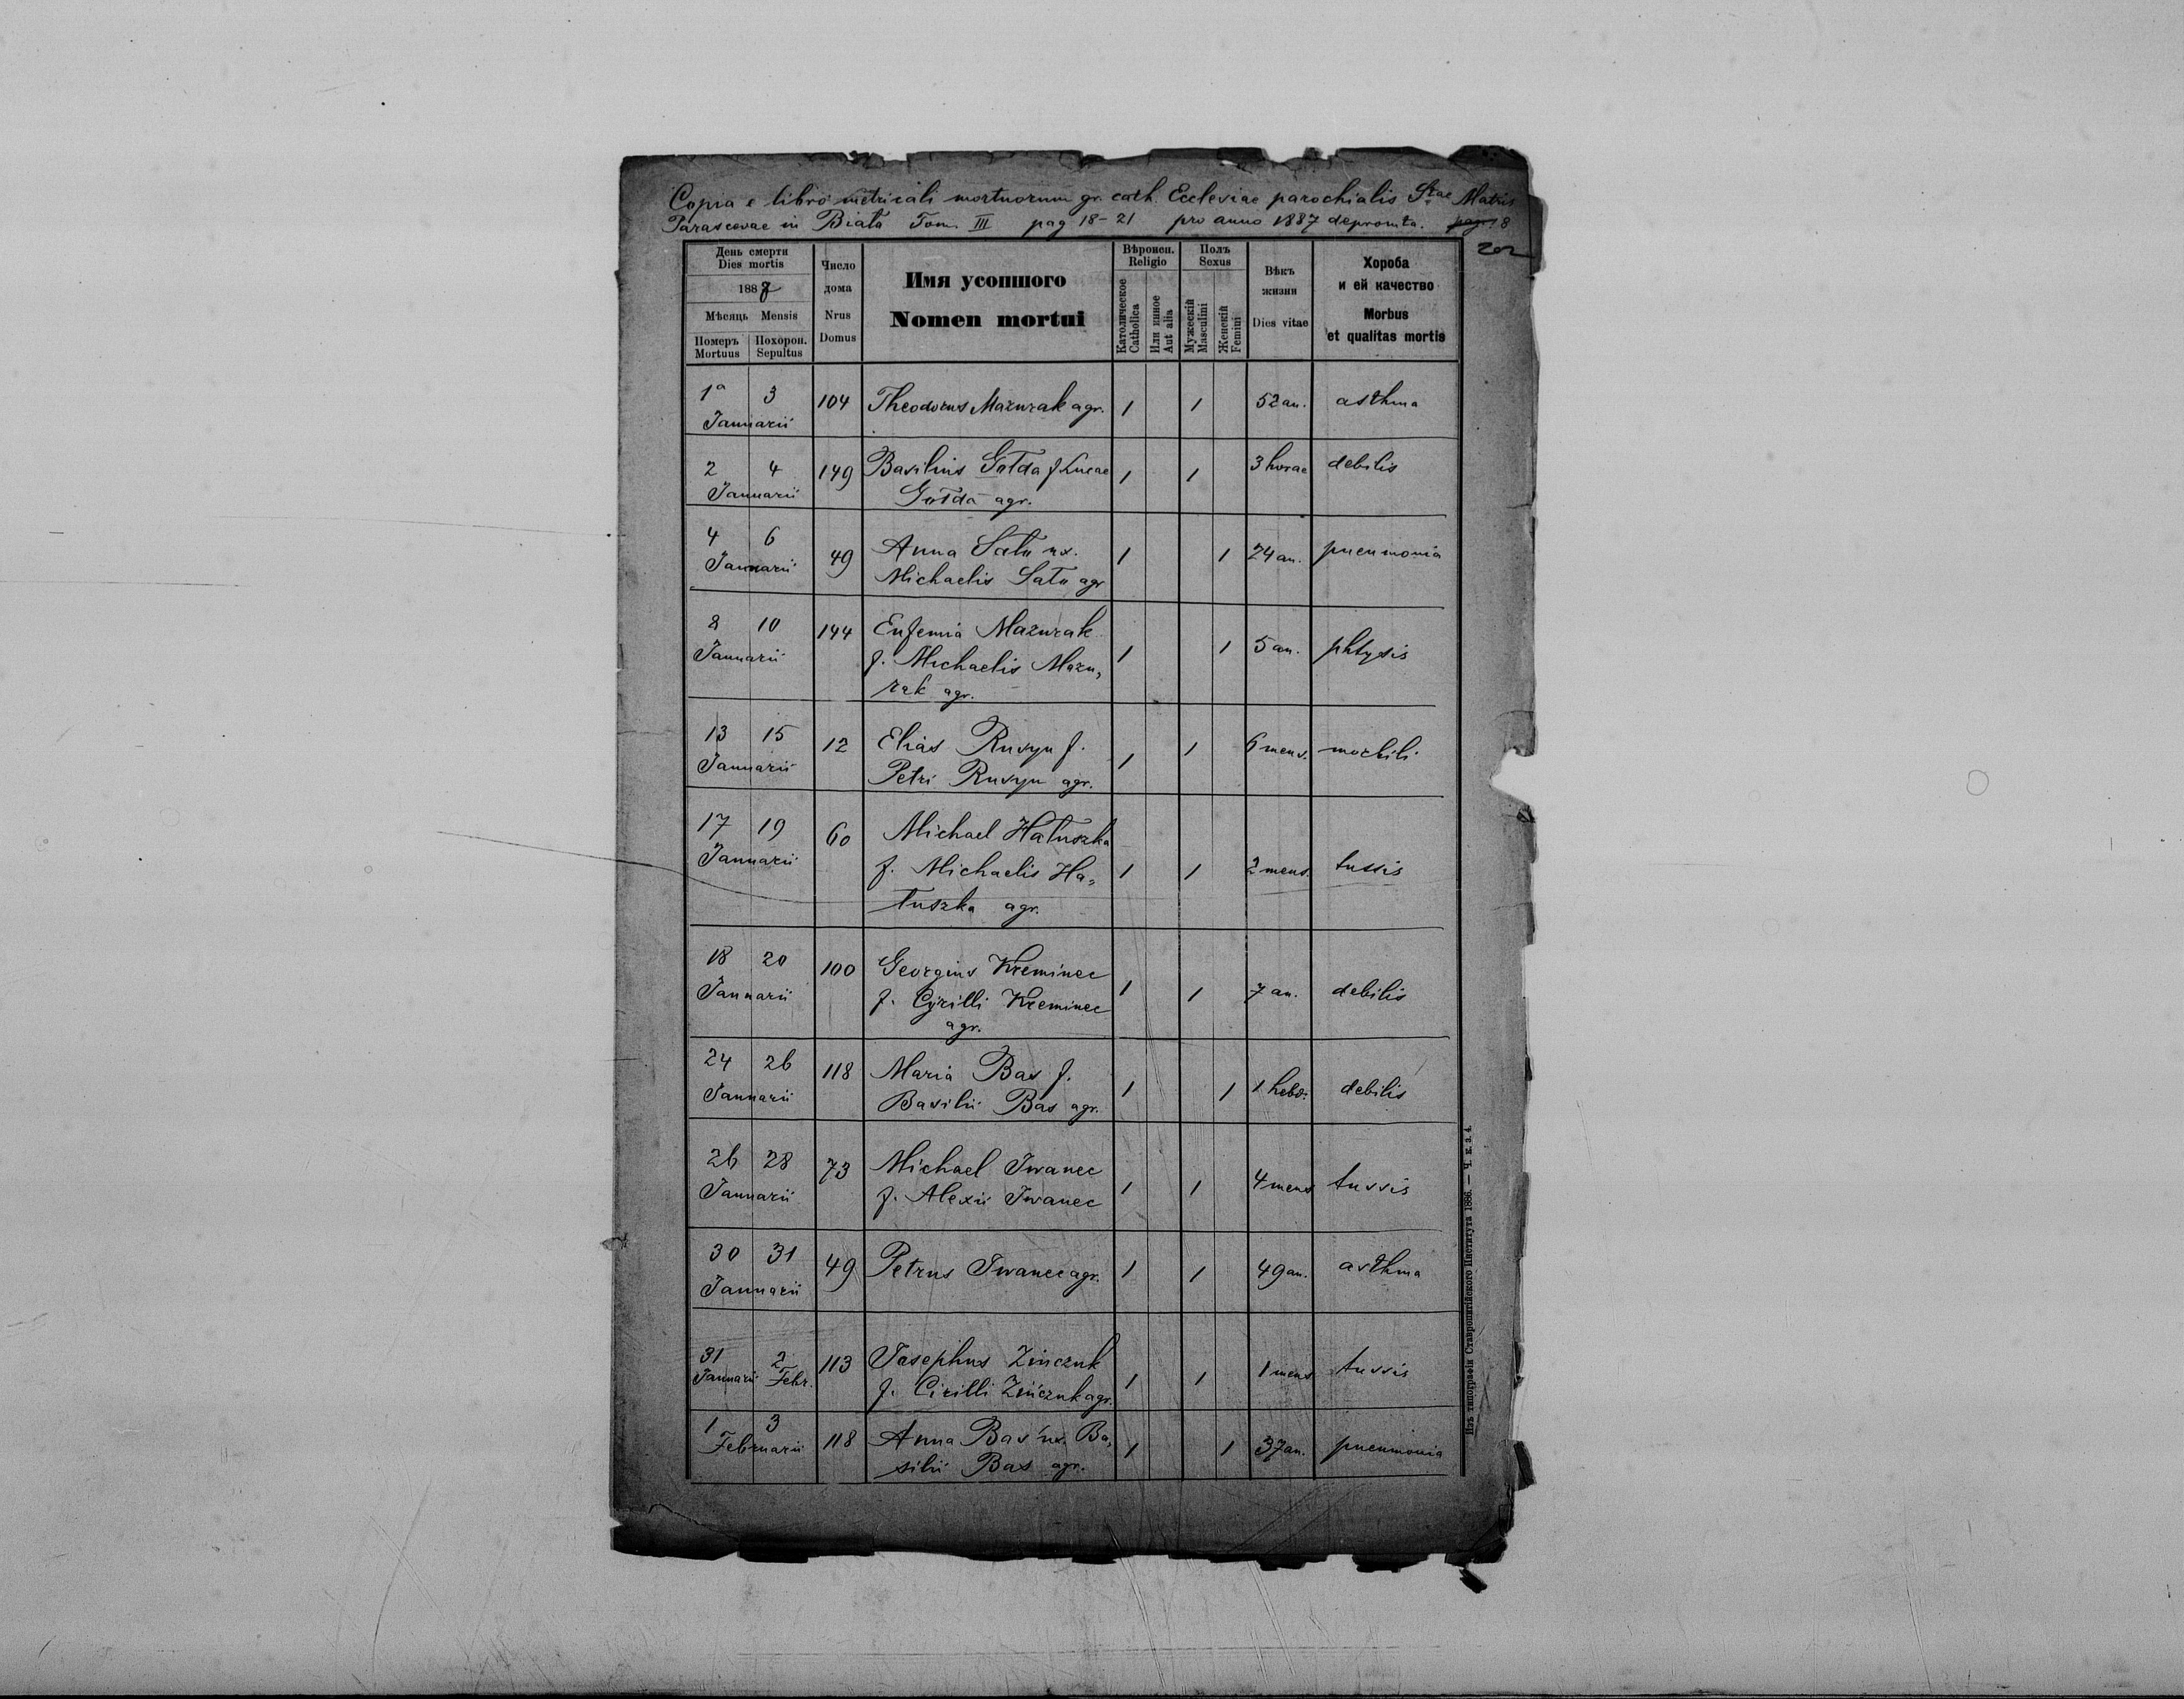 Copia e libro metricali mortuorum gr. cath. Ecclesiae parochialis Stae Matris
Parascevae in Biała Tom. III pag 18-21 pro anno 1887 depromta. pag. 18
202
День смерти
Dies mortis
1887
Мѣсяць Mensis
Померъ Mortuus
Похорон. Sepultus
Число дома
Nrus Domus
Имя усопшого
Nomen mortui
Вѣроисп. Religio
Католическое Catholica
Или иное Aut alia
Полъ Sexus
Мужескій Masculini
Женскій Femini
Вѣкъ жизни
Dies vitae
Хороба и ей качество
Morbus et qualitas mortis
1a 3 104 Theodorus Mazurak agr. 1 1 52 an. asthma
Januarii
2 4 149 Basilius Gołda f. Lucae 1 1 3 horae debilis
Januarii Gołda agr.
4 6 49 Anna Łata ux. 1 1 24 an. pneumonia
Januarii Michaelis Łata agr
8 10 144 Eufemia Mazurak 1 1 5 an. phtysis
Januarii f. Michaelis Mazu,
rak agr.
13 15 12 Elias Rusyn f. 1 1 6 mens. morbili
Januarii Petri Rusyn agr.
17 19 60 Michael Hałuszka
Januarii f. Michaelis Ha= 1 1 2 mens. tussis
łuszka agr.
18 20 100 Georgius Kreminec
Januarii f. Cyrilli Kreminec 1 1 7 an. debilis
agr.
24 26 118 Maria Bas f. 1 1 1 hebd. debilis
Januarii Basilii Bas agr.
26 28 73 Michael Iwanec 1 1 4 mens tussis
Januarii f. Alexii Iwanec
30 31 49 Petrus Iwanec agr. 1 1 49 an. asthma
Januarii
31 2 113 Josephus Zinczuk 1 1 1 mens tussis
Januarii Febr. f. Cirilli Zinczuk agr.
1 3 118 Anna Bas ux. Ba, 1 1 37 an. pneumonia
Februarii silii Bas agr.
Изъ типографіи Ставропигійского Института 1886. — Ч. к. з. 4.